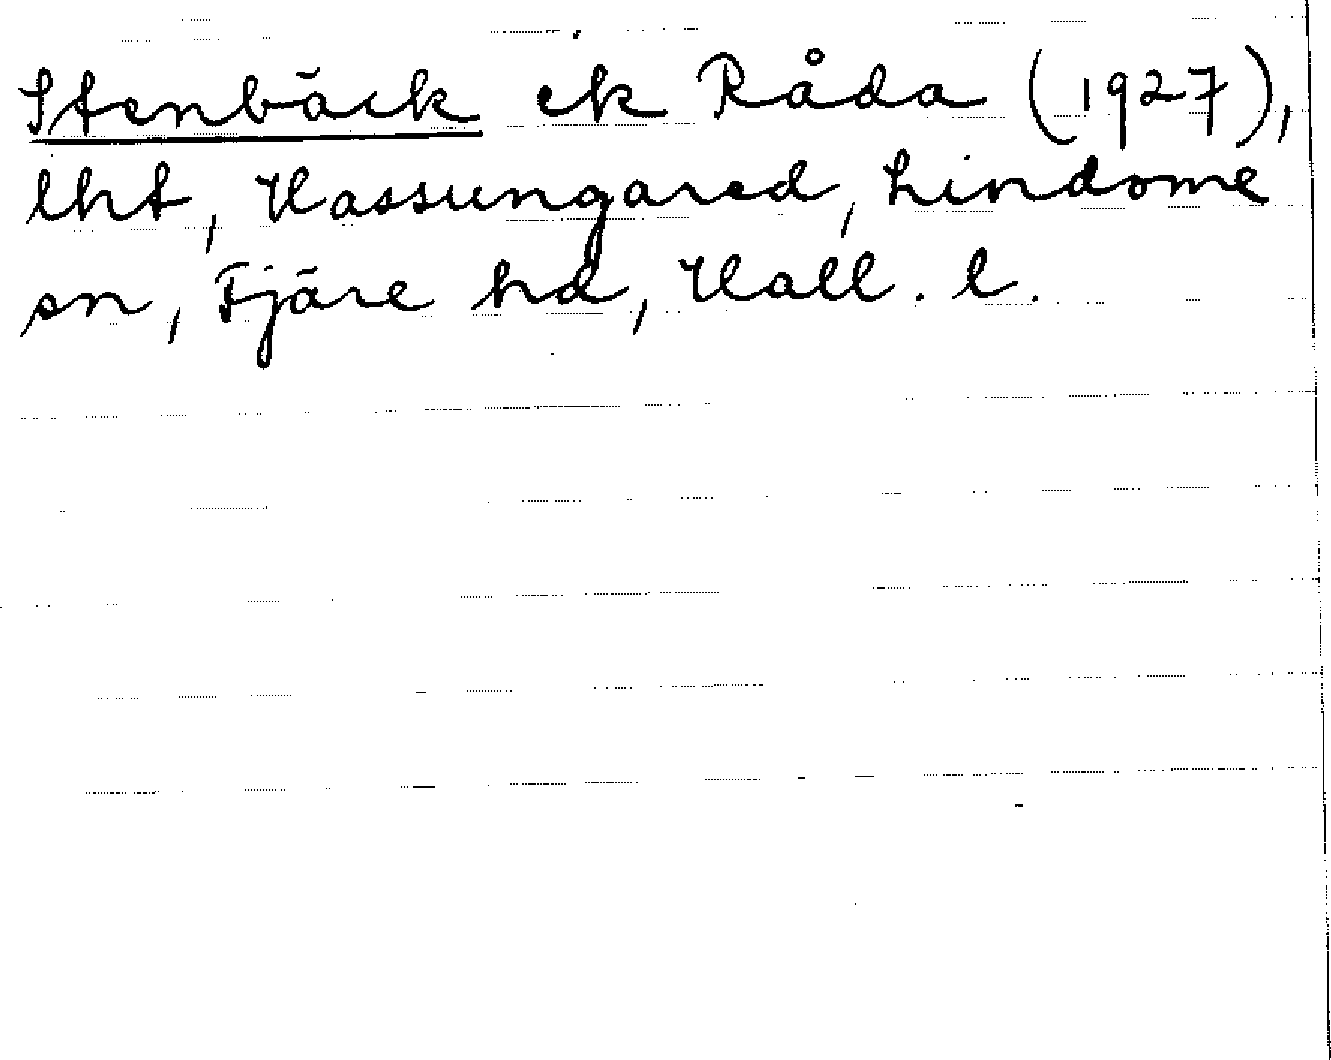 Stenbäck ek Råda (1927),
lht, Hassungared, Lindome
sn, Fjäre hd, Hall. l.